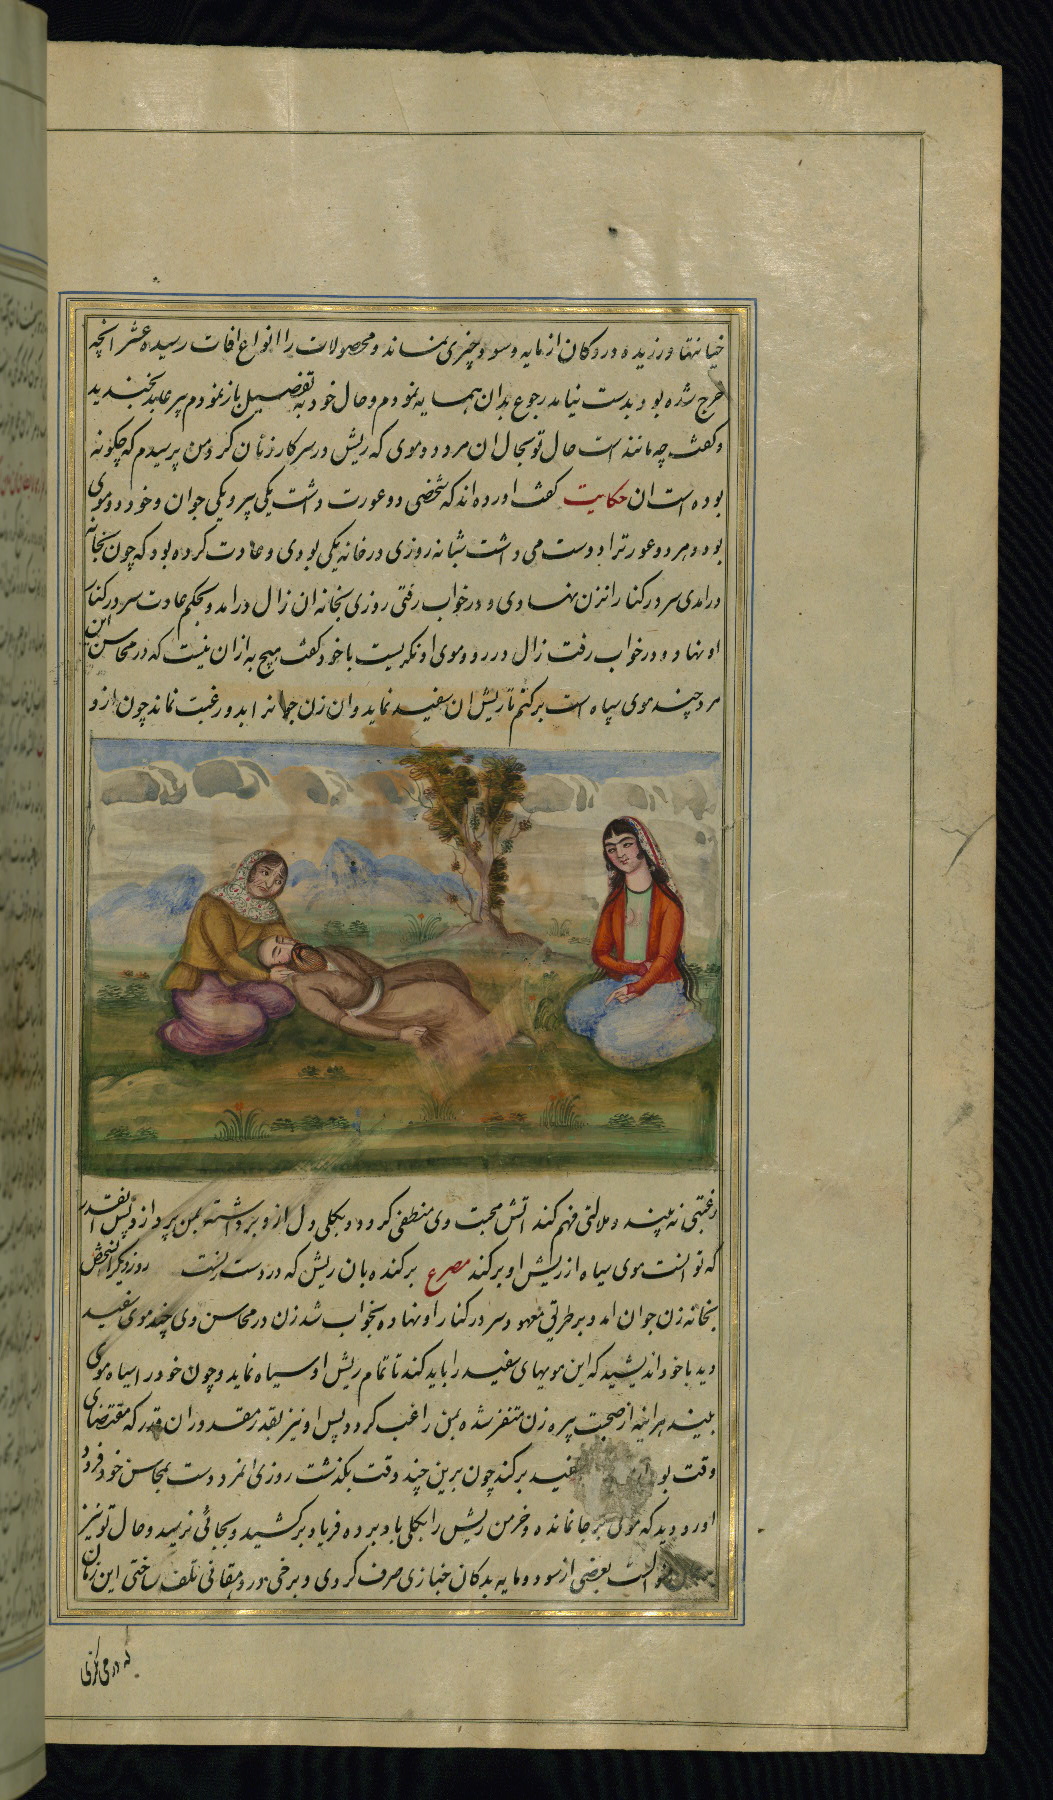 خیانتها ورزیده و در دکان از مایه و سود چیزی نماند و محصولات را انواع افات رسیده عشر انچه
خرج شده بود بدست نیامد رجوع بدان همسایه نمودم و حال خود به تفصیل باز نمودم پیر عابد بخندید
و کفت چه مانند است حال تو بحال ان مرد دو موی که ریش در سر کار زنان کرد من پرسیدم که چکونه
بوده است ان حکایت کفت اورده اند که شخصی دو عورت داشت یکی پیر و یکی جوان و خود دو موی
بود و هر دو عورت را دوست می داشت شبانه روزی در خانه یکی بودی و عادت کرده بود که چون بخانه
در امدی سر در کنار انزن نهادی و در خواب رفتی روزی بخانه ان زال در امد و بحکم عادت سر در کنار
او نهاد و در خواب رفت زال در رو و موی او نکریست با خود کفت هیچ به از ان نیست که در محاسن این
مرد چند موی سیاه است برکنم تا ریش ان سفید نماید و ان زن جوانرا بدو رغبت نماند چون از و
رغبتی نه بیند و ملالتی فهم کند اتش محبت وی منطفی کردد و بکلی دل از و برداشته بمن پردازد پس انقدر
که توانست موی سیاه از ریش او برکند مصرع برکنده به ان ریش که در دست زنست روز دیکر انشخص
بخانه زن جوان امد و بر طریق معهود سر در کنار او نهاده بخواب شد زن در محاسن وی چند موی سفید
دید با خود اندیشید که این مویهای سفید را باید کند تا تمام ریش او سیاه نماید و چون خود را سیاه موی
بیند هر اینه از صحبت پیره زن متنفر شده بمن راغب کردد پس او نیز بقدر مقدور ان قدر که مقتضای
وقت بود سفید برکند چون برین چند وقت بکذشت روزی انمرد دست بمحاسن خود فرود
اورد دید که موی بر جا نمانده و خرمن ریش را بکلی باد برده فریاد بر کشید و بجائی نرسید و حال تو نیز
بعضی از سود و مایه بدکان خبازی صرف کردی و برخی در دهقانی تلف ساختی این زمان
که در می نکری